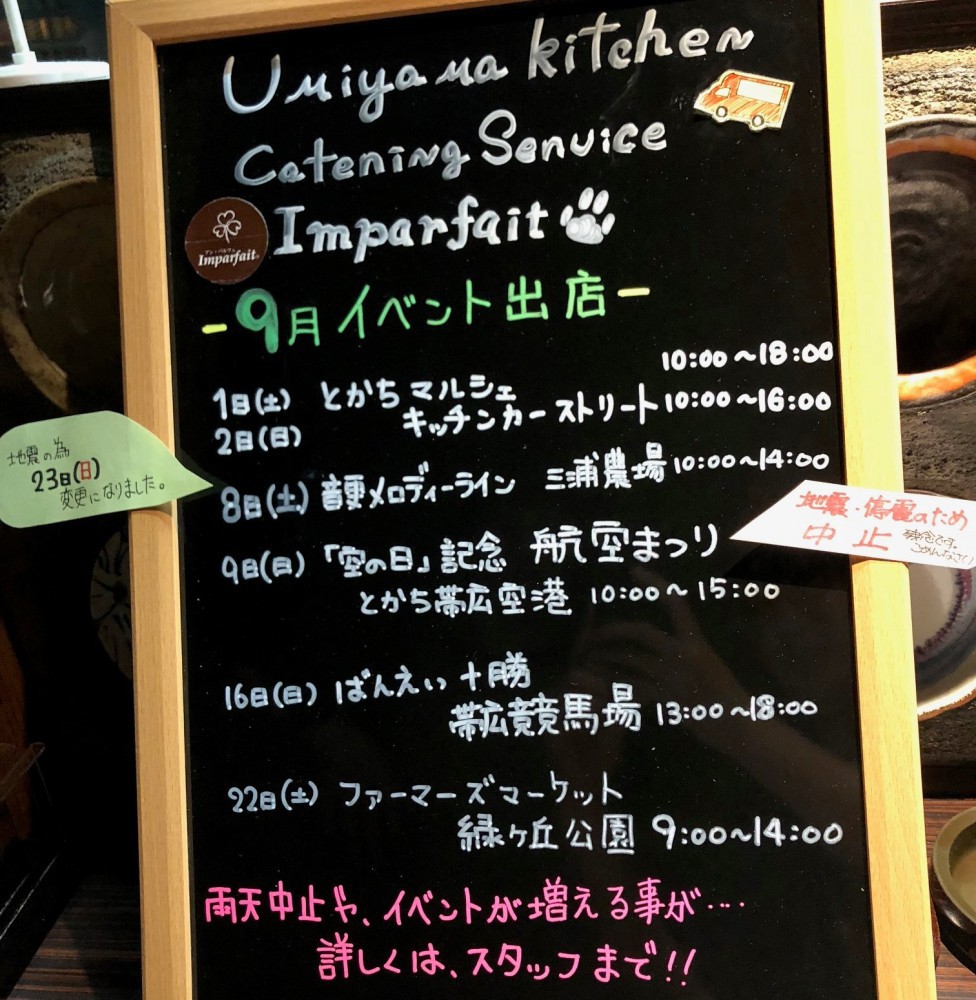 Umiyama kitchen
Catering Service
Imparfait
アン・パルフェ
Imparfait
-9月イベント出店-
10:00～18:00
1日(土) とかちマルシェ
キッチンカーストリート 10:00～16:00
2日(日)
地震の為
23日(日)
変更になりました。
8日(土) 音更メロディーライン 三浦農場 10:00～14:00
地震・停電のため
中止
ごめんなさい
9日(日) 「空の日」記念 航空まつり
とかち帯広空港 10:00～15:00
16日(日) ばんえい十勝
帯広競馬場 13:00～18:00
22日(土) ファーマーズマーケット
緑ヶ丘公園 9:00～14:00
雨天中止や、イベントが増える事が....
詳しくは、スタッフまで!!